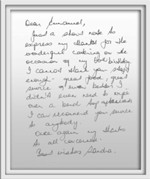 Dear Emmanuel,
Just a short note to
express my thanks for the
wonderful cooking on the
occasion of my birthday
I cannot thank you
enough - great food, great
service & even better I
didn't even need to
I can recommend your service
to anybody
Once again my thanks
to all concerned
Best wishes Sandra.